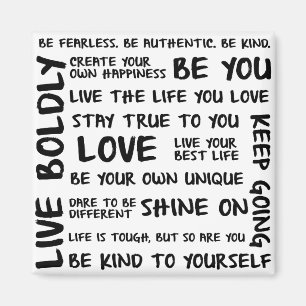 BE FEARLESS. BE AUTHENTIC. BE KIND.
LIVE BOLDLY
CREATE YOUR
OWN HAPPINESS
BE YOU
LIVE THE LIFE YOU LOVE
STAY TRUE TO YOU
LOVE
LIVE YOUR
BEST LIFE
KEEP GOING
BE YOUR OWN UNIQUE
DARE TO BE
DIFFERENT
SHINE ON
LIFE IS TOUGH, BUT SO ARE YOU
BE KIND TO YOURSELF